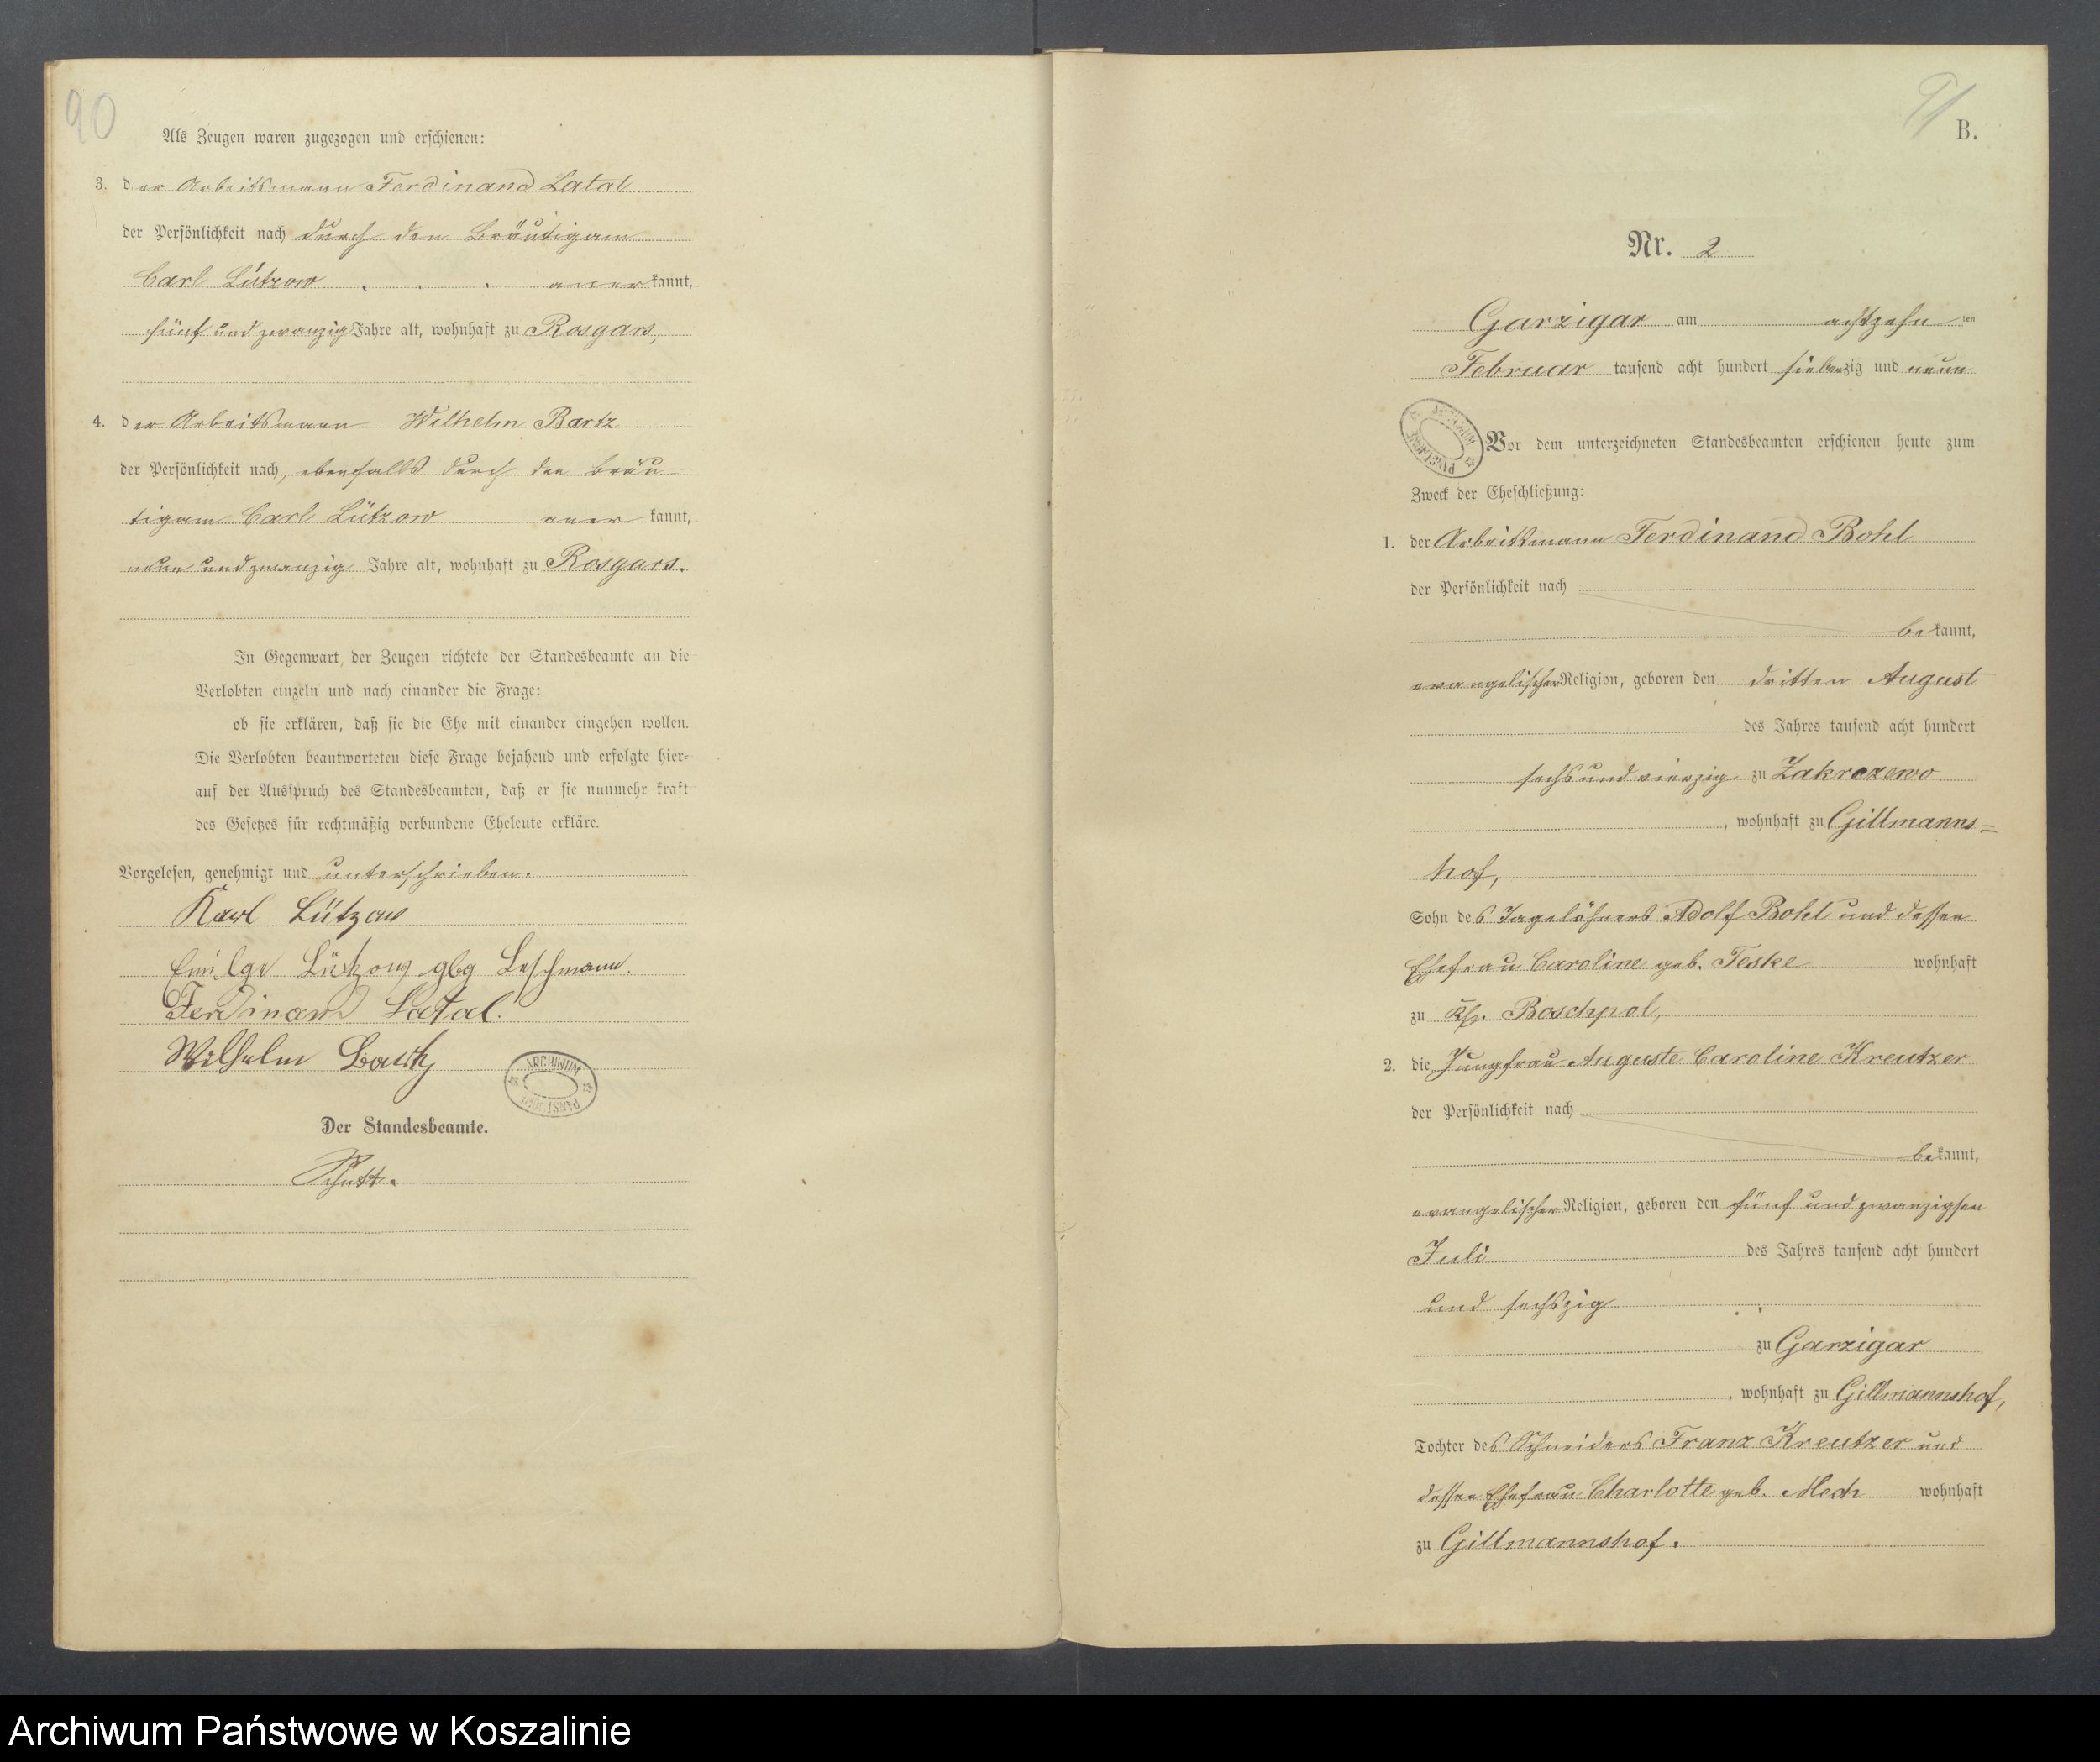 90
Als Zeugen waren zugezogen und erschienen:
3. der Arbeitsmann Ferdinand Latal
der Persönlichkeit nach durch den Bräutigam
Carl Lützow anerkannt,
fünf und zwanzig Jahre alt, wohnhaft zu Rosgars,
4. der Arbeitsmann Wilhelm Bartz
der Persönlichkeit nach, ebenfalls durch den Bräu=
tigam Carl Lützow anerkannt,
neun und zwanzig Jahre alt, wohnhaft zu Rosgars.
In Gegenwart der Zeugen richtete der Standesbeamte an die
Verlobten einzeln und nach einander die Frage:
ob sie erklären, daß sie die Ehe mit einander eingehen wollen.
Die Verlobten beantworteten diese Frage bejahend und erfolgte hier=
auf der Ausspruch des Standesbeamten, daß er sie nunmehr kraft
des Gesetzes für rechtmäßig verbundene Eheleute erkläre.
Vorgelesen, genehmigt und unterschrieben.
Karl Lützow
Lützow gbg Leschmann.
Ferdinand Latal.
Wilhelm Bartz
ARCHIWUM PAŃSTWOWE
Der Standesbeamte.
91
B.
Nr. 2
Garzigar am achtzehn ten
Februar tausend acht hundert siebenzig und neun
ARCHIWUM PAŃSTWOWE
Vor dem unterzeichneten Standesbeamten erschienen heute zum
Zweck der Eheschließung:
1. der Arbeitsmann Ferdinand Bohl
der Persönlichkeit nach
bekannt,
evangelischer Religion, geboren den dritten August
des Jahres tausend acht hundert
sechs und vierzig zu Zakrczewo
, wohnhaft zu Gillmanns=
hof,
Sohn des Tagelöhners Adolf Bohl und dessen
Ehefrau Caroline geb. Teske wohnhaft
zu Boschpol,
2. die Jungfrau Auguste Caroline Kreutzer
der Persönlichkeit nach
bekannt,
evangelischer Religion, geboren den fünf und zwanzigsten
Juli des Jahres tausend acht hundert
und sechszig
zu Garzigar
, wohnhaft zu Gillmannshof,
Tochter des Schneiders Franz Kreutzer und
dessen Ehefrau Charlotte geb. Mech wohnhaft
zu Gillmannshof.
Archiwum Państwowe w Koszalinie